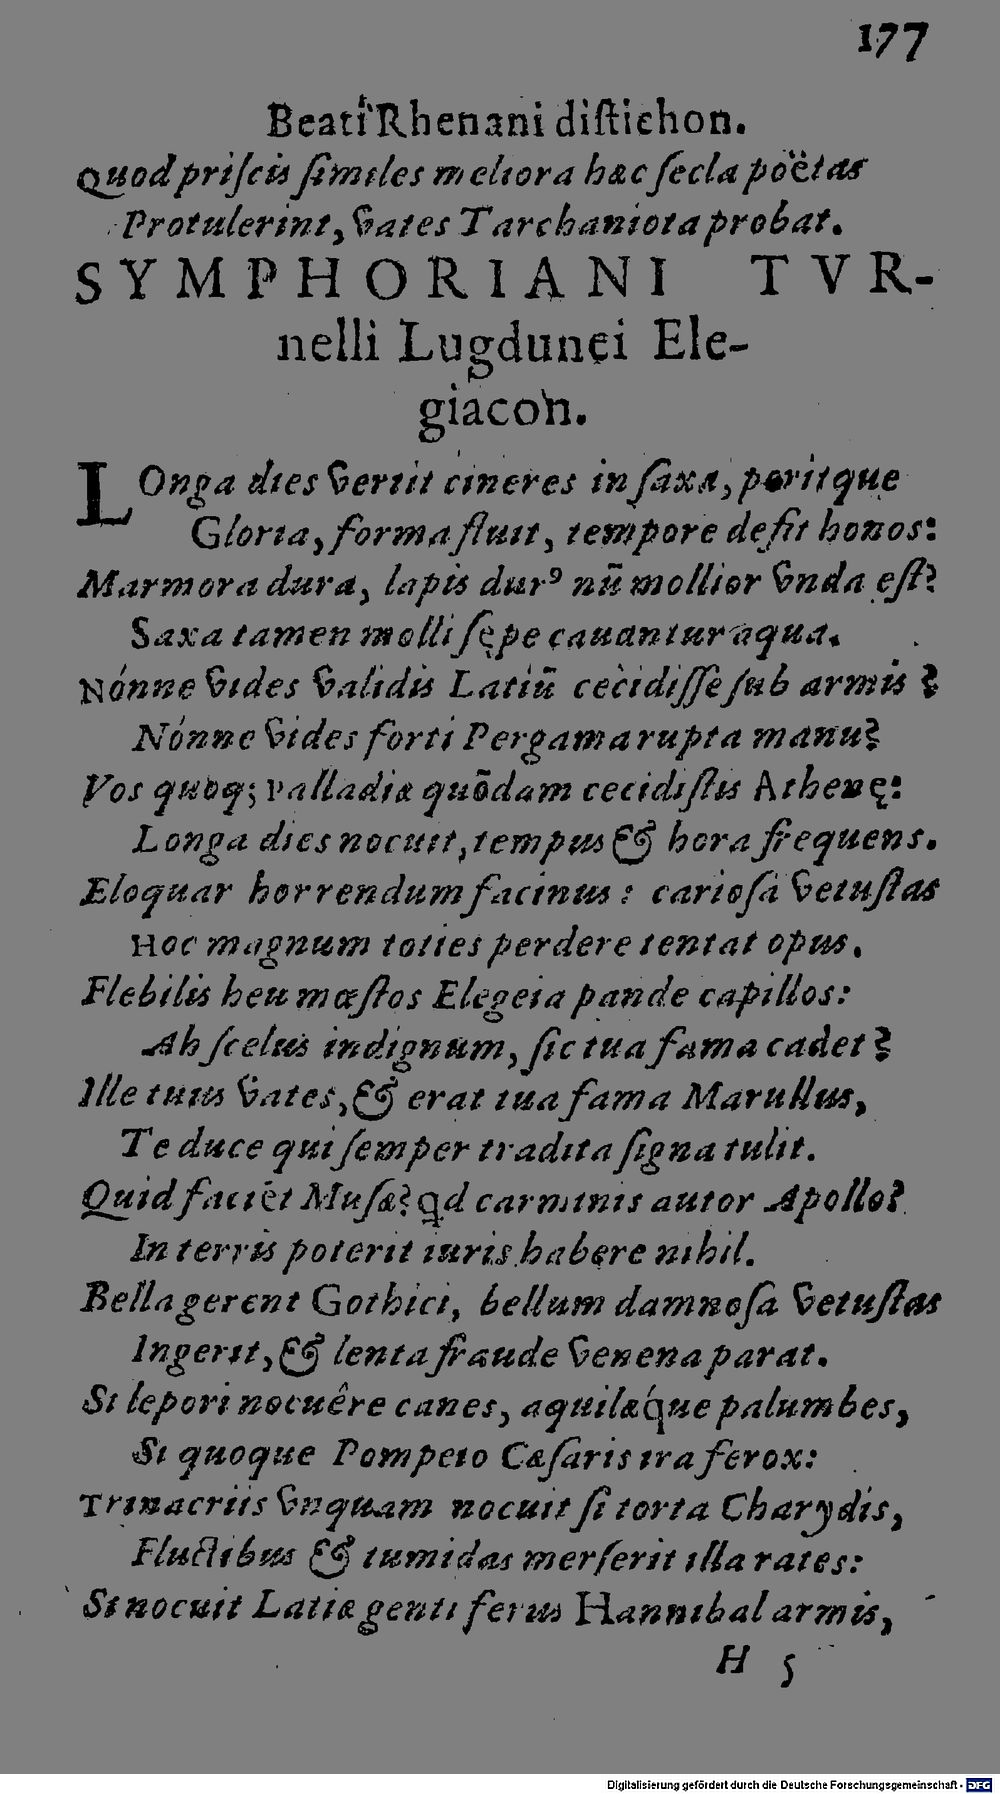 177
Beati Rhenani distichon.
Quod priscis similes meliora hæc secla poëtas
Protulerint, vates Tarchaniota probat.
SYMPHORIANI TVR-
nelli Lugdunei Ele-
giacon.
LOnga dies vertit cineres in saxa, peritque
Gloria, forma fluit, tempore desit honos:
Marmora dura, lapis durꝰ nũ mollior vnda est?
Saxa tamen molli sępe cauantur aqua.
Nónne vides validis Latiũ cecidisse sub armis?
Nónne vides forti Pergama rupta manu?
Vos quoq; Palladiæ quõdam cecidistis Athenę:
Longa dies nocuit, tempus & hora frequens.
Eloquar horrendum facinus: cariosa vetustas
Hoc magnum toties perdere tentat opus.
Flebilis heu mœstos Elegeia pande capillos:
Ah scelus indignum, sic tua fama cadet?
Ille tuus vates, & erat tua fama Marullus,
Te duce qui semper tradita signa tulit.
Quid faciẽt Musæ? qd carminis autor Apollo?
In terris poterit iuris habere nihil.
Bella gerent Gothici, bellum damnosa vetustas
Ingerit, & lenta fraude venena parat.
Si lepori nocuêre canes, aquilǽque palumbes,
Si quoque Pompeio Cæsaris ira ferox:
Trinacriis vnquam nocuit si torta Charydis,
Fluctibus & tumidas merserit illa rates:
Si nocuit Latiæ genti ferus Hannibal armis,
H 5
Digitalisierung gefördert durch die Deutsche Forschungsgemeinschaft - DFG